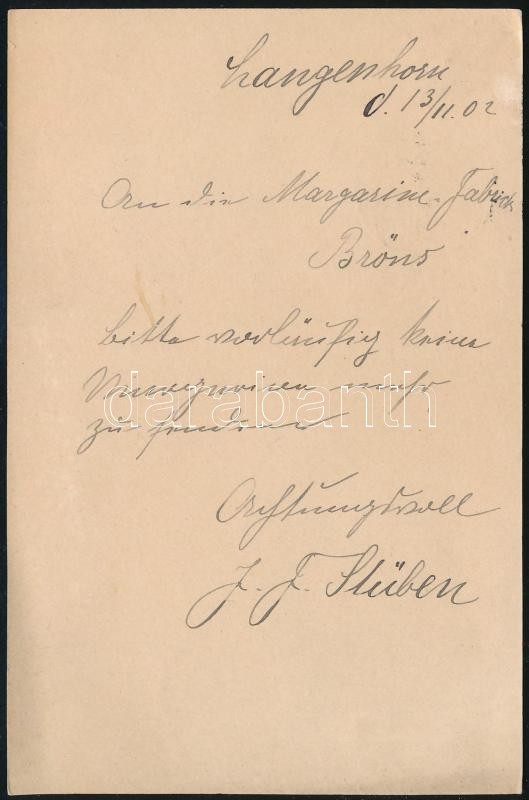 Langenhorn
d. 13/11. 02
An die Margarine-Fabrick
Bröns
bitte vorläufig keine
Margarine mehr
zu senden
Achtungsvoll
J. F. Stüben
darabanth